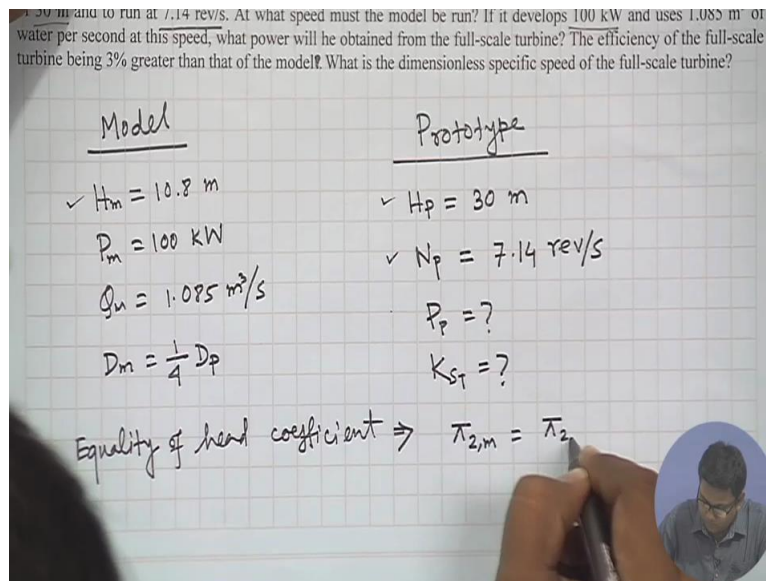 30 m and to run at 7.14 rev/s. At what speed must the model be run? If it develops 100 kW and uses 1.085 m³ of
water per second at this speed, what power will he obtained from the full-scale turbine? The efficiency of the full-scale
turbine being 3% greater than that of the model?. What is the dimensionless specific speed of the full-scale turbine?
Model
Prototype
✓ Hm = 10.8 m
✓ Hp = 30 m
Pm = 100 KW
✓ Np = 7.14 rev/s
Qm = 1.085 m³/s
Pp = ?
Dm = 1/4 Dp
KST = ?
Equality of head coefficient ⇒ π2,m = π2,